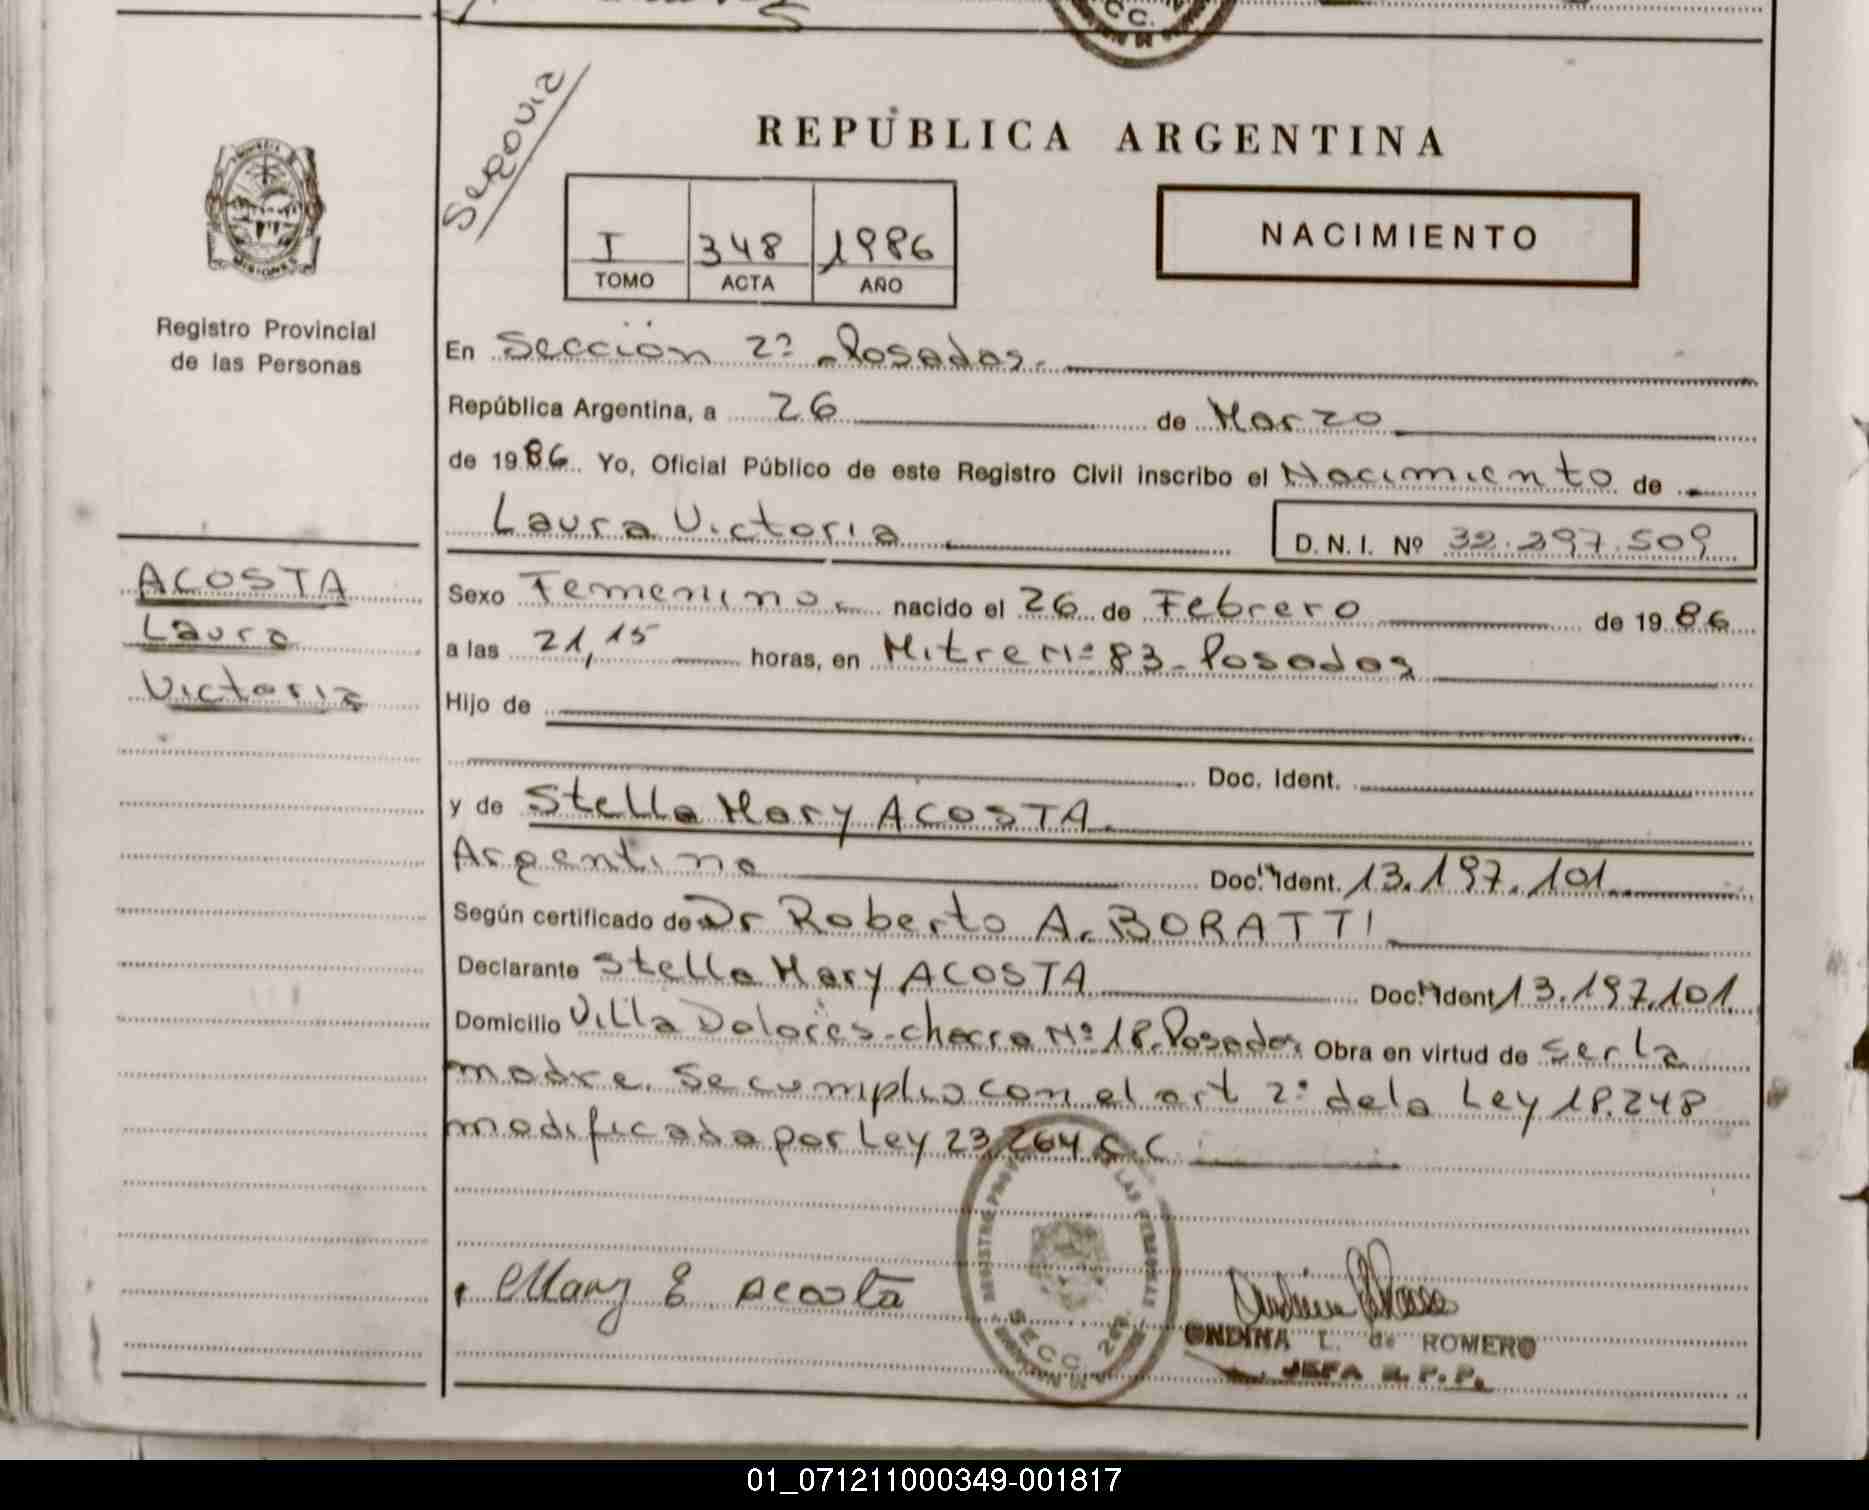 Segovia
REPÚBLICA ARGENTINA
MISIONES
I 348 1986
TOMO ACTA AÑO
NACIMIENTO
Registro Provincial
de las Personas
En Sección 2ª - Posadas.-
República Argentina, a 26 de Marzo
de 1986. Yo, Oficial Público de este Registro Civil inscribo el Nacimiento de
Laura Victoria D.N.I. Nº 32.297.509
ACOSTA
Laura
Victoria
Sexo Femenino nacido el 26 de Febrero de 1986
a las 21,15 horas, en Mitre Nº 83 - Posadas
Hijo de
Doc. Ident.
y de Stella Mary ACOSTA.
Argentina Doc. Ident. 13.197.101
Según certificado de Dr Roberto A. BORATTI
Declarante Stella Mary ACOSTA Doc. Ident 13.197.101
Domicilio Villa Dolores - chacra Nº 18. Posadas Obra en virtud de ser la
madre. Se cumplio con el art 2º de la Ley 18.248
modificada por Ley 23.264 C.C
REGISTRO PROV. LAS PERSONAS
SECC. 2da.
Mary E Acosta
ONDINA L. de ROMERO
JEFA R.P.P.
01_071211000349-001817